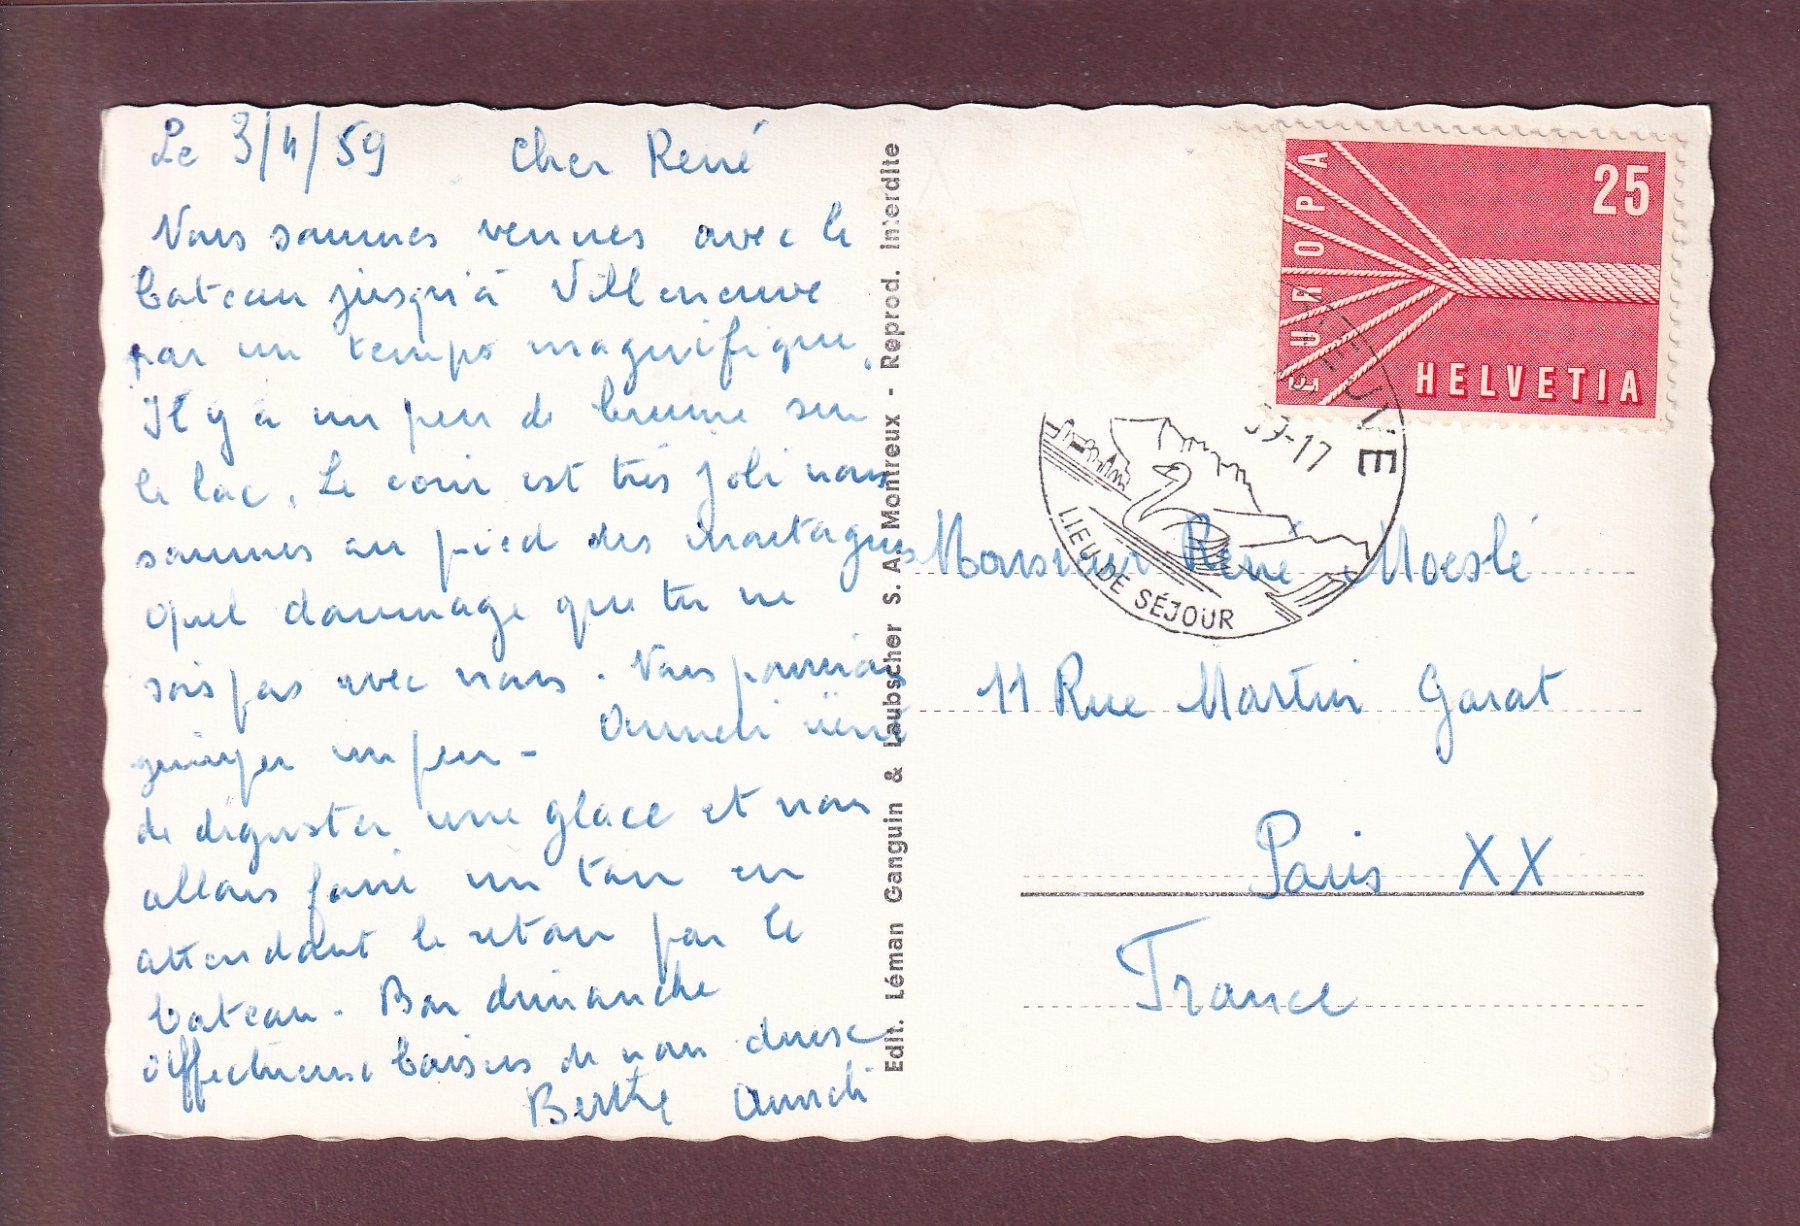 Le 3/4/59 Cher René
Nous sommes venues avec le
bateau jusqu'à Villeneuve
par un temps magnifique.
Il y a un peu de brume sur
le lac. Le coin est très joli nous
sommes au pied des montagnes
Quel dommage que tu ne
sois pas avec nous. Nous
un peu - Anneli vient
de déguster une glace et nous
allons faire un tour en
attendant le retour par le
bateau. Bon dimanche
Affectueux baisers de nous deux
Berthe Anneli
Edit. Léman Ganguin & Laubscher S. A. Montreux - Reprod. Interdite
EUROPA
25
HELVETIA
59-17
LIEU DE SÉJOUR
Monsieur René Moeslé
11 Rue Martin Garat
Paris XX
France